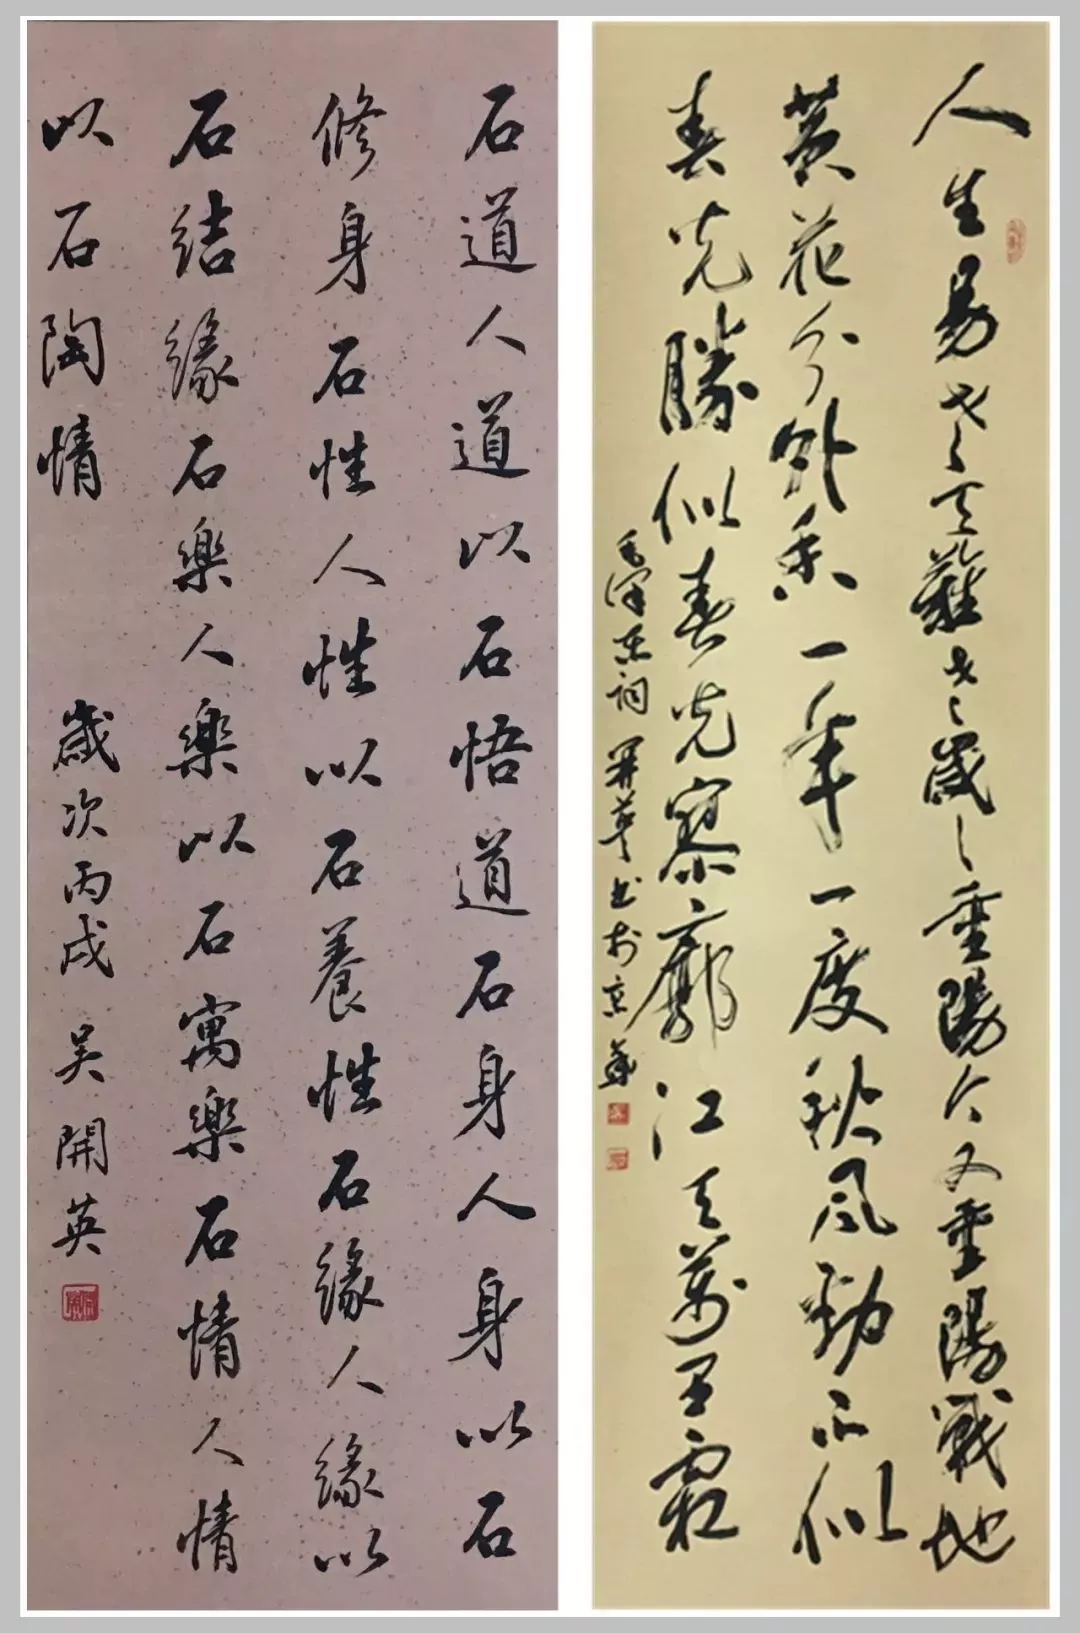 人生易老天難老歲々重陽今又重陽戰地
黃花分外香一年一度秋風勁不似
春光勝似春光寥廓江天萬里霜
毛澤東詞 開英書於京華
石道人道以石悟道石身人身以石
修身石性人性以石養性石緣人緣以
石結緣石樂人樂以石寓樂石情人情
以石陶情 歲次丙戌 吳開英